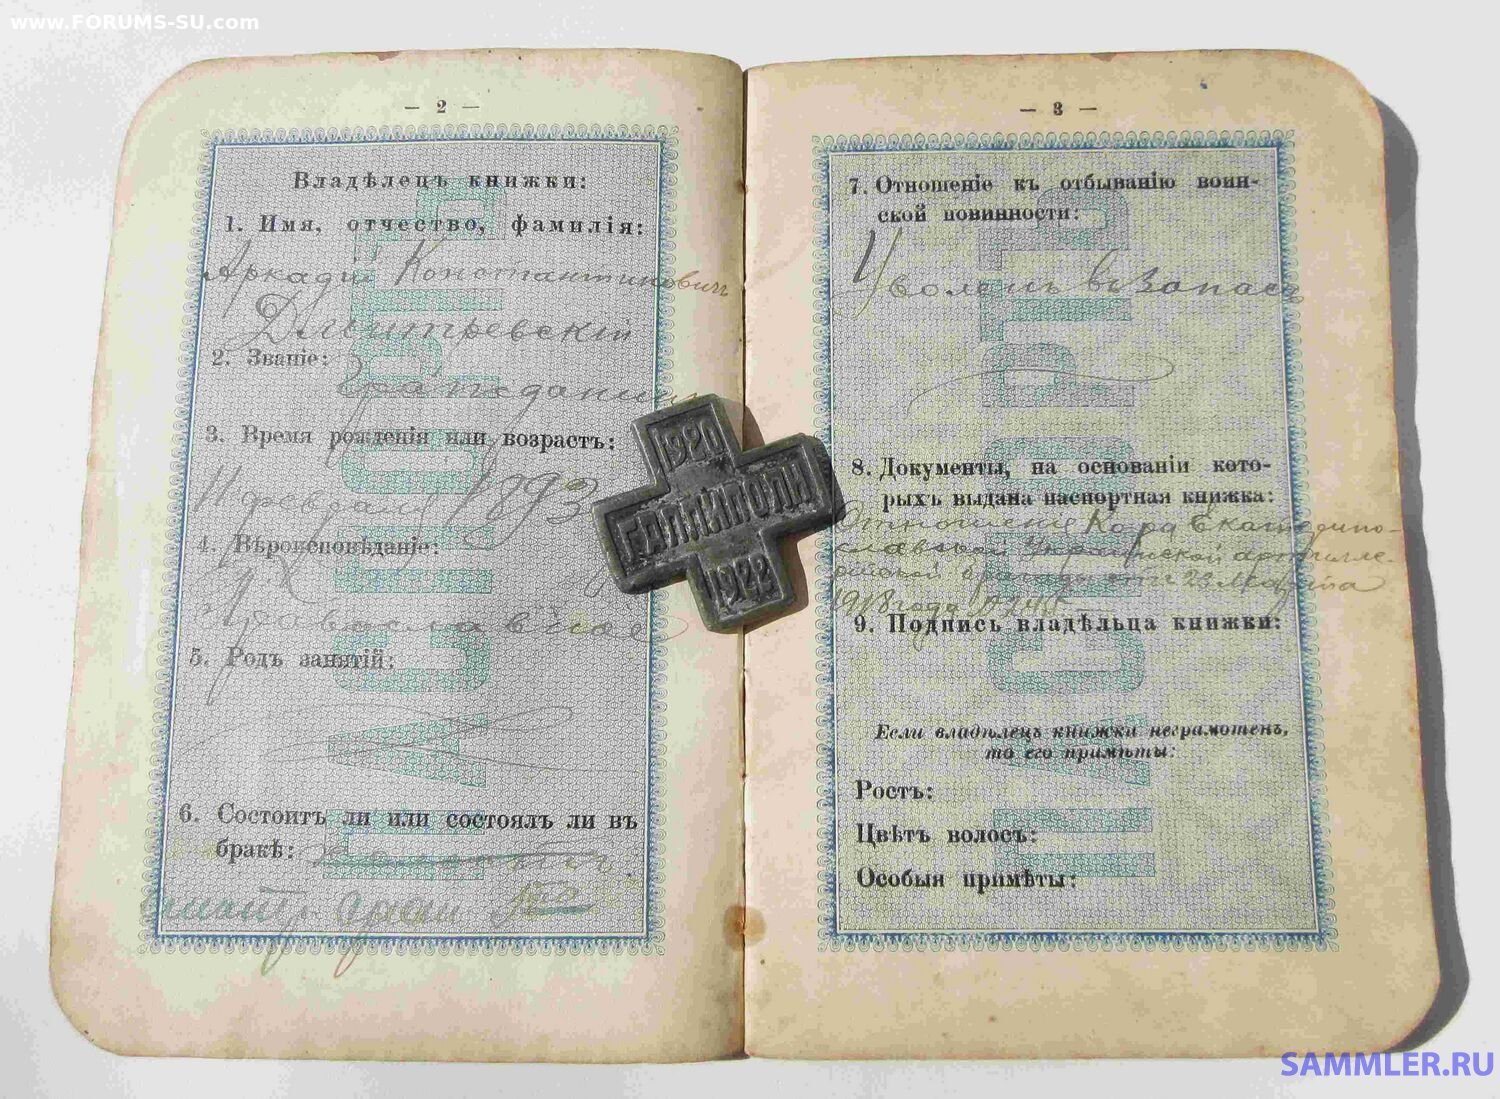 www.FORUMS-SU.com
— 2 —
Владѣлецъ книжки:
1. Имя, отчество, фамилія:
Аркадій Константиновичъ
Дмитревскій
2. Званіе:
Гражданинъ
3. Время рожденія или возрастъ:
11 февраля 1893
4. Вѣроисповѣданіе:
Православное
5. Родъ занятій:
6. Состоитъ ли или состоялъ ли въ
бракѣ:
— 3 —
7. Отношеніе къ отбыванію воин-
ской повинности:
Уволенъ въ запасъ
8. Документы, на основаніи кото-
рыхъ выдана паспортная книжка:
Отношеніе Екатерино-
славской Украинской артилле-
рійской бригады отъ 22 Марта
1918 года
9. Подпись владѣльца книжки:
Если владѣлецъ книжки неграмотенъ,
то его примѣты:
Ростъ:
Цвѣтъ волосъ:
Особыя примѣты:
ПАСПОРТЪ
ПАСПОРТЪ
1920
ГАЛЛИПОЛИ
1922
SAMMLER.RU